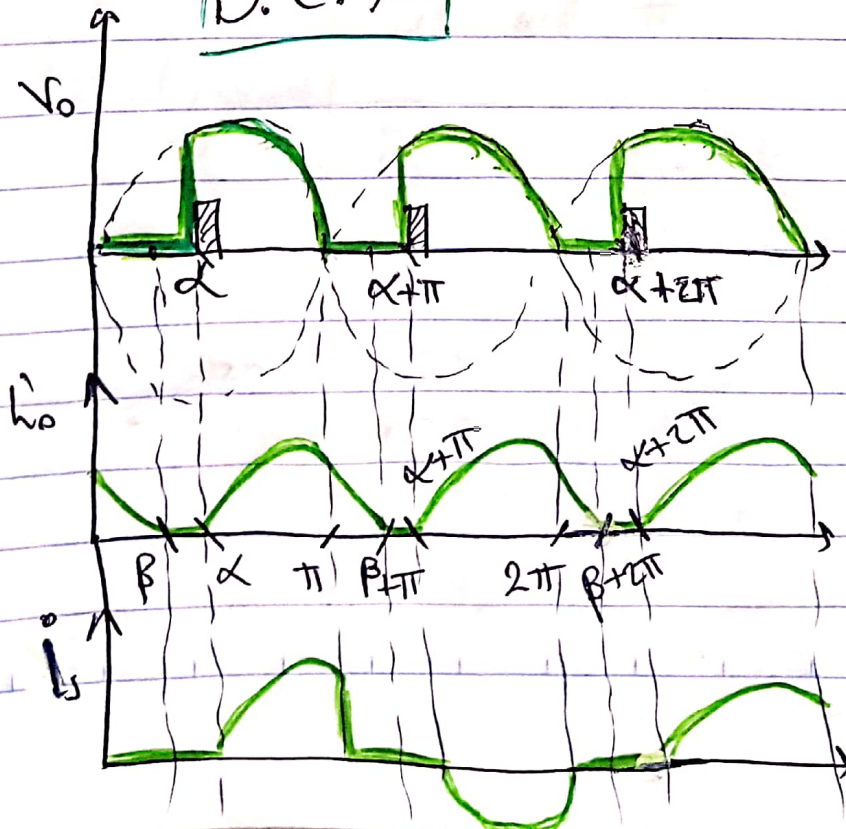 V₀
α
α+π
α+2π
i₀
α+π
α+2π
β
α
π
β+π
2π
β+2π
iₛ